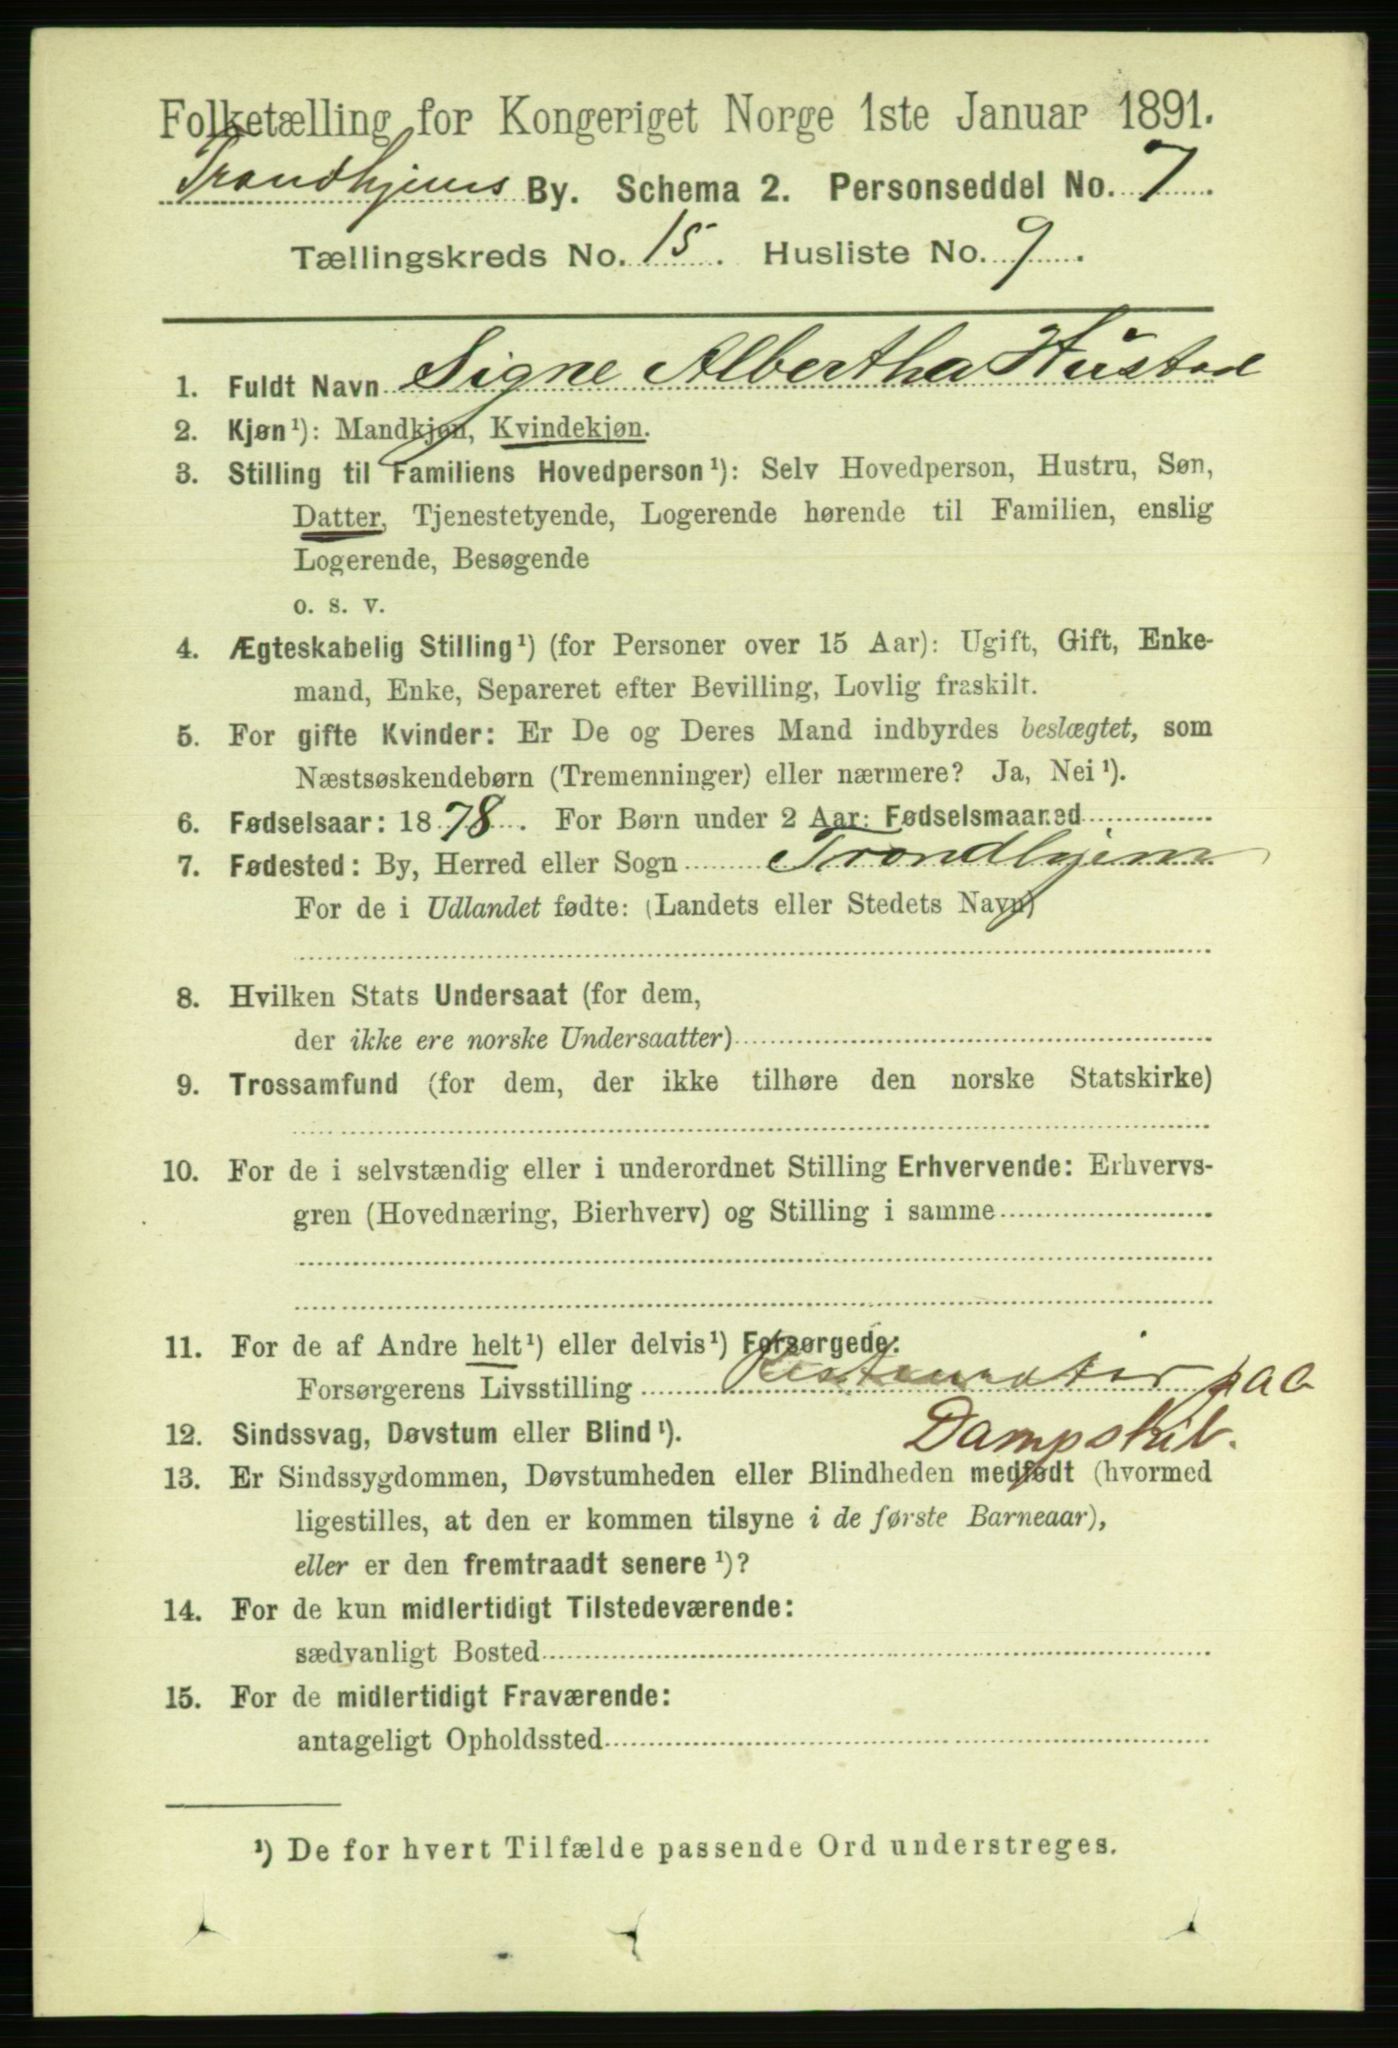 Folketælling for Kongeriget Norge 1ste Januar 1891.
Trondhjems By. Schema 2. Personseddel No. 7.
Tællingskreds No. 15. Husliste No. 9.
1. Fuldt Navn Signe Albertha Hustad
2. Kjøn¹): Mandkjøn, Kvindekjøn.
3. Stilling til Familiens Hovedperson¹): Selv Hovedperson, Hustru, Søn,
Datter, Tjenestetyende, Logerende hørende til Familien, enslig
Logerende, Besøgende
o. s. v.
4. Ægteskabelig Stilling¹) (for Personer over 15 Aar): Ugift, Gift, Enke-
mand, Enke, Separeret efter Bevilling, Lovlig fraskilt.
5. For gifte Kvinder: Er De og Deres Mand indbyrdes beslægtet, som
Næstsøskendebørn (Tremenninger) eller nærmere? Ja, Nei¹).
6. Fødselsaar: 1878. For Børn under 2 Aar: Fødselsmaaned
7. Fødested: By, Herred eller Sogn Trondhjem
For de i Udlandet fødte: (Landets eller Stedets Navn)
8. Hvilken Stats Undersaat (for dem,
der ikke ere norske Undersaatter)
9. Trossamfund (for dem, der ikke tilhøre den norske Statskirke)
10. For de i selvstændig eller i underordnet Stilling Erhvervende: Erhvervs-
gren (Hovednæring, Bierhverv) og Stilling i samme
11. For de af Andre helt¹) eller delvis¹) Forsørgede:
Forsørgerens Livsstilling Restauratør paa
Dampskib.
12. Sindssvag, Døvstum eller Blind¹).
13. Er Sindssygdommen, Døvstumheden eller Blindheden medfødt (hvormed
ligestilles, at den er kommen tilsyne i de første Barneaar),
eller er den fremtraadt senere¹)?
14. For de kun midlertidigt Tilstedeværende:
sædvanligt Bosted
15. For de midlertidigt Fraværende:
antageligt Opholdssted
¹) De for hvert Tilfælde passende Ord understreges.